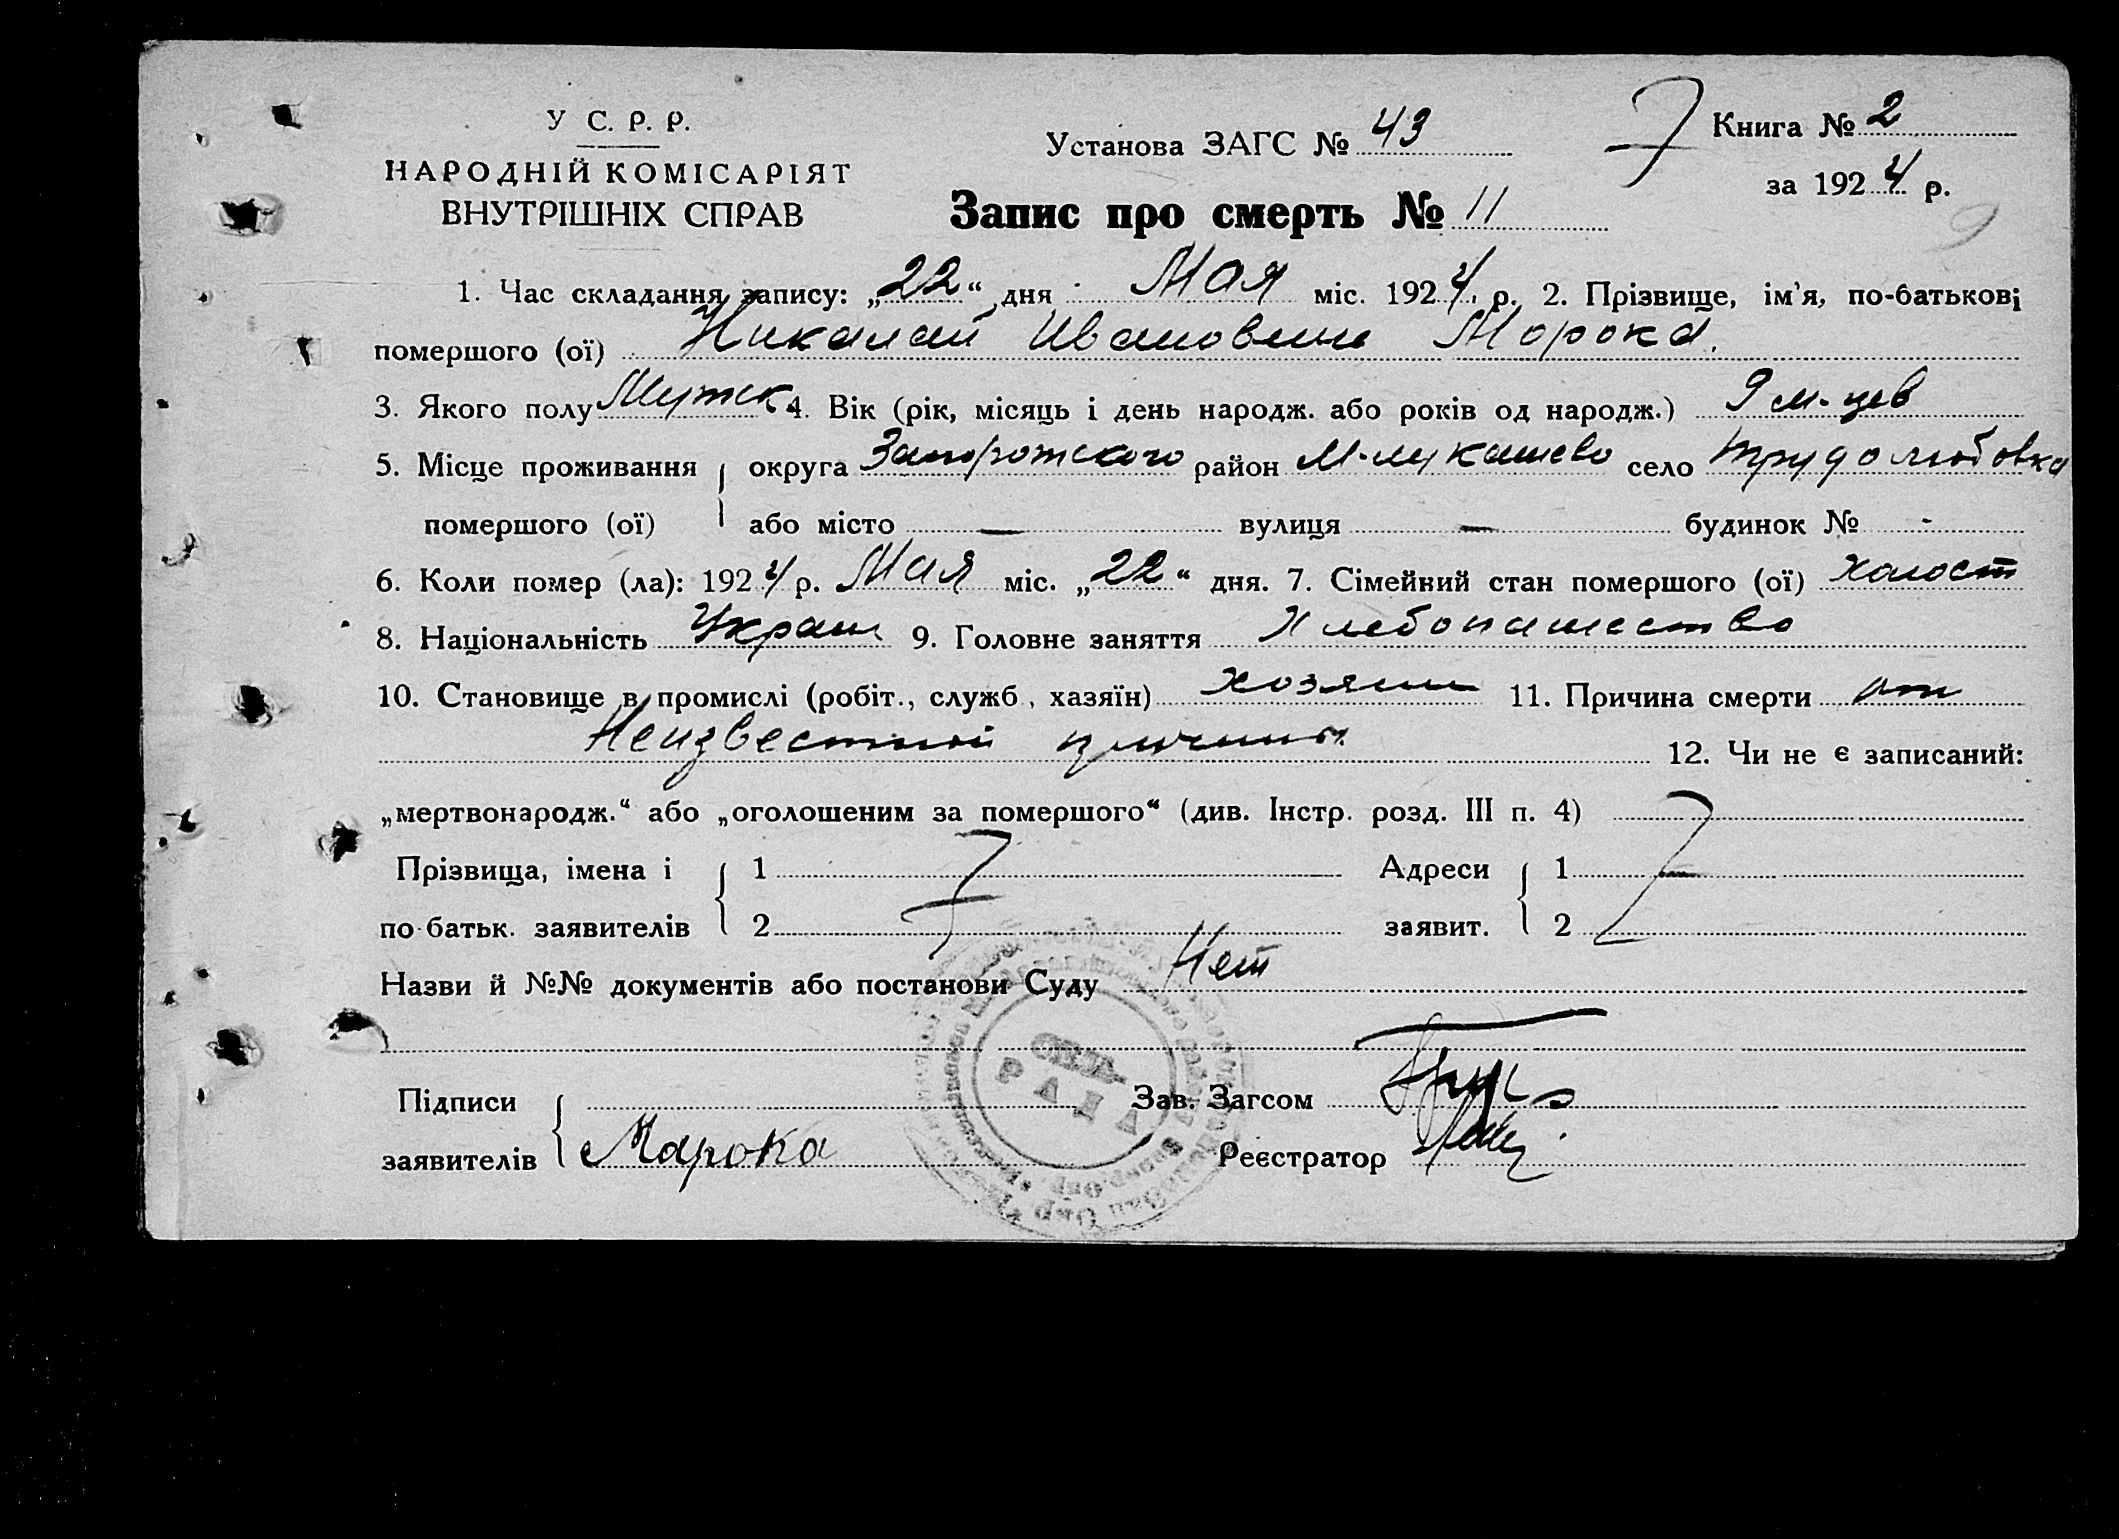 У С. Р. Р.
НАРОДНІЙ КОМІСАРІЯТ
ВНУТРІШНІХ СПРАВ
Установа ЗАГС № 43
Книга № 2
за 1924 р.
Запис про смерть № 11
1. Час складання запису: „22“ дня Мая міс. 1924 р. 2. Прізвище, ім'я, по-батькові
помершого (ої) Николай Иванович Морока.
3. Якого полу Мужск 4. Вік (рік, місяць і день народж. або років од народж.) 9 м-цев
5. Місце проживання округа Запорожского район М-лукашево село Трудолюбовка
помершого (ої) або місто — вулиця — будинок № -
6. Коли помер (ла): 1924 р. Мая міс. „22“ дня. 7. Сімейний стан помершого (ої) холост
8. Національність Украин 9. Головне заняття Хлебопашество
10. Становище в промислі (робіт., служб., хазяїн) хозяин 11. Причина смерти от
Неизвестной причины 12. Чи не є записаний:
„мертвонародж.“ або „оголошеним за помершого“ (див. Інстр. розд. III п. 4)
Прізвища, імена і 1 Адреси 1
по-батьк. заявителів 2 заявит. 2
Назви й №№ документів або постанови Суду Нет
Підписи Зав. Загсом
заявителів Марока Реєстратор
РАДА